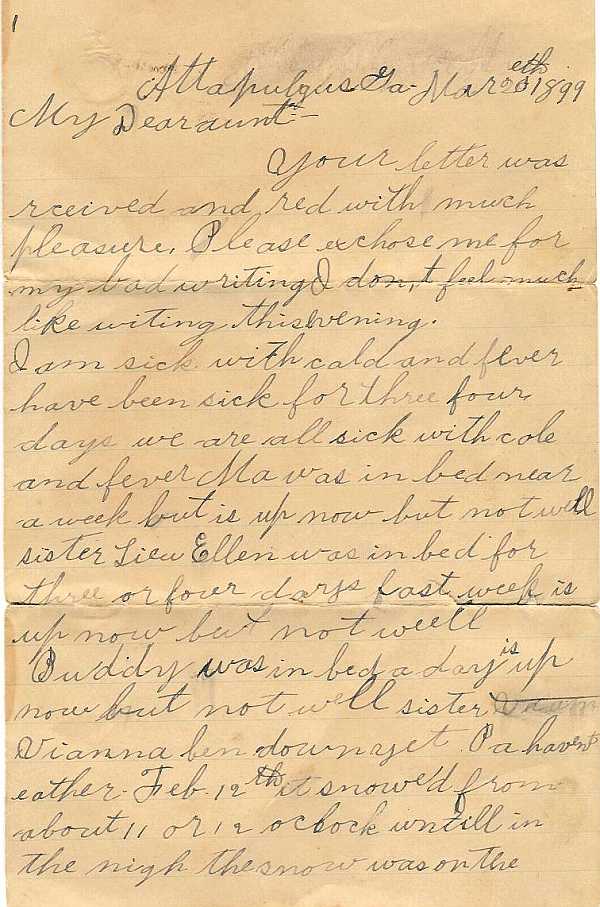 1
Attapulgus Ga. Mar 20 eth 1899
My Dear aunt:-
Your letter was
rceived and red with much
pleasure. Please exchose me for
my bad writing I don,t feel much
like witing this evening.
I am sick with cald and fever
have been sick for three four
days we are all sick with cole
and fever Ma was in bed near
a week but is up now but not well
sister Lieu Ellen was in bed for
three or four days last week is
up now but not well
Buddy was in bed a day is up
now but not well sister
Vianna ben down yet Pa haven't
eather. Feb. 12th it snowed from
about 11 or 12 oclock untill in
the nigh the snow was on the